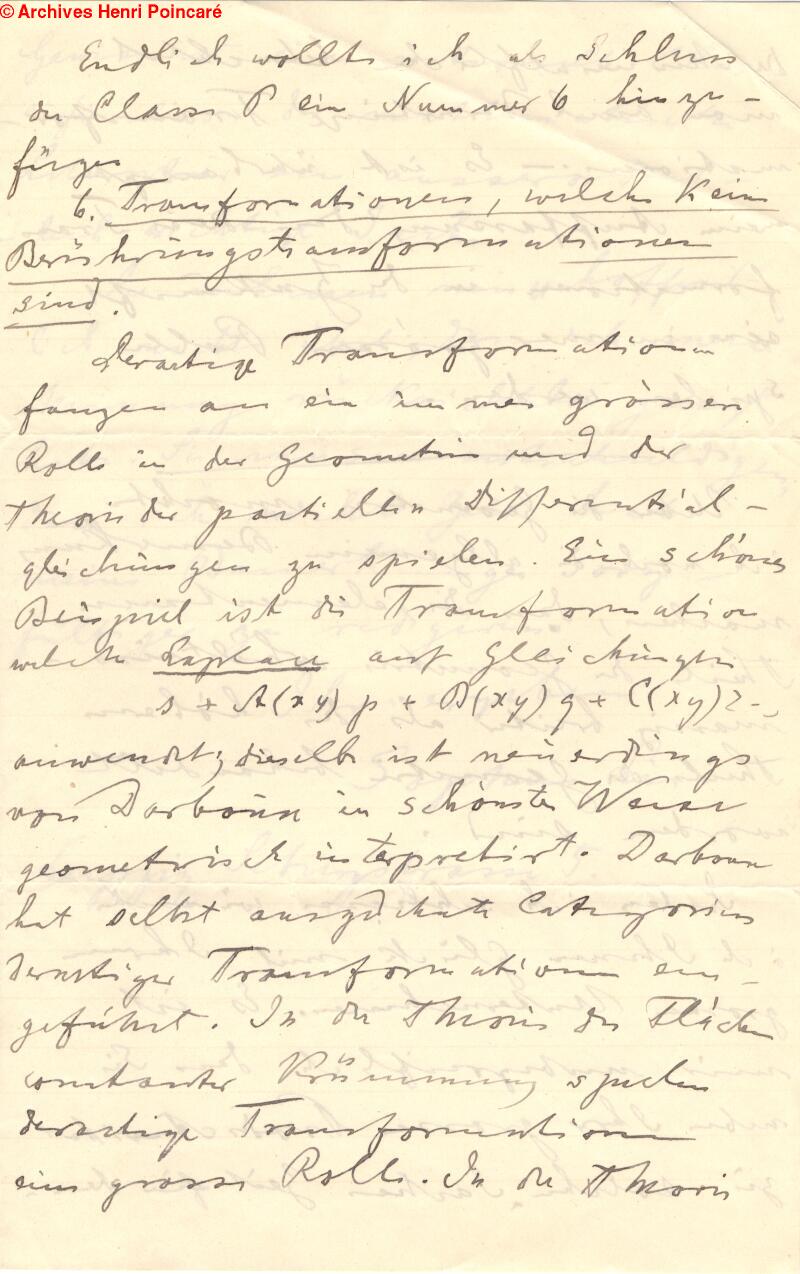 © Archives Henri Poincaré
Endlich wollte ich als Schluss
der Classe P ein Nummer 6 hinzu-
fügen
6. Transformationen, welche keine
Berührungstransformationen
sind.
Derartige Transformationen
fangen an eine immer grössere
Rolle in der Geometrie und der
Theorie der partiellen Differential-
gleichungen zu spielen. Ein schönes
Beispiel ist die Transformation
welche Laplace auf Gleichungen
s + A(xy) p + B(xy) q + C(xy) z =
anwendet; dieselbe ist neuerdings
von Darboux in schönster Weise
geometrisch interpretirt. Darboux
hat selbst ausgedehnte Categorien
derartiger Transformationen ein-
geführt. In der Theorie der Flächen
constanter Krümmung spielen
derartige Transformationen
eine grosse Rolle. In der Theorie